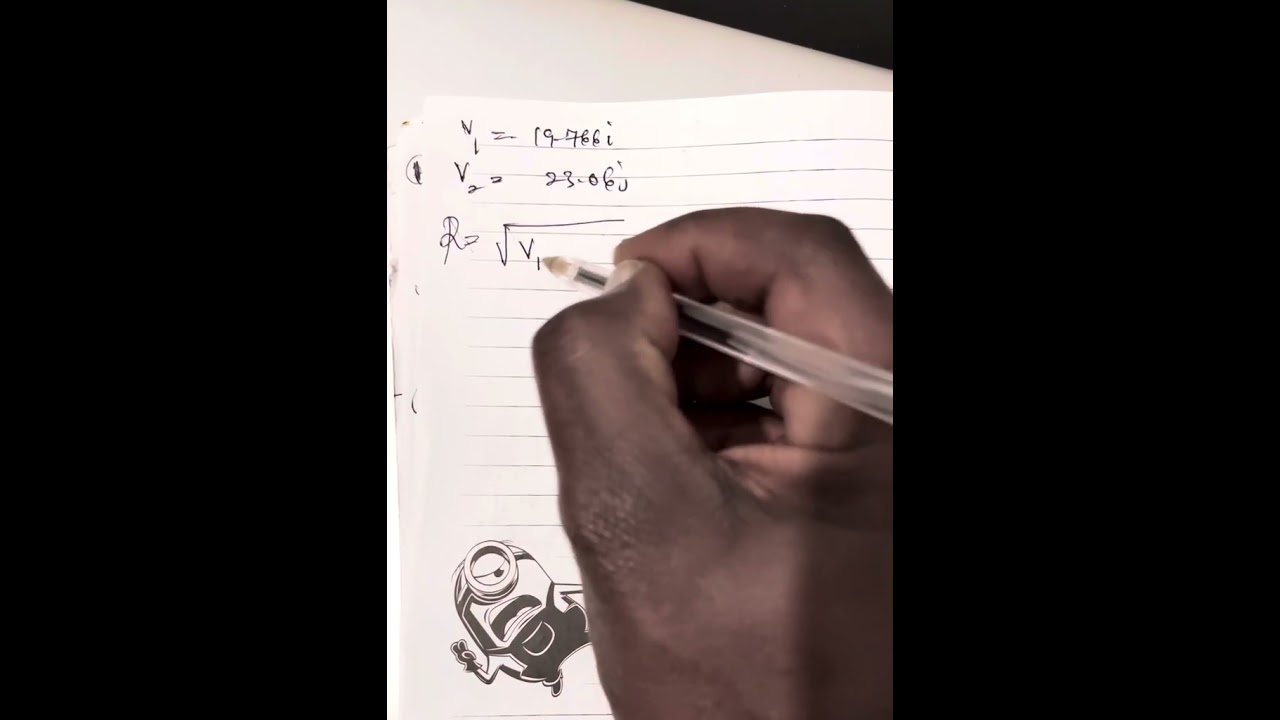 V₁ = 19.766i
V₂ = 23.06j
R = √V₁